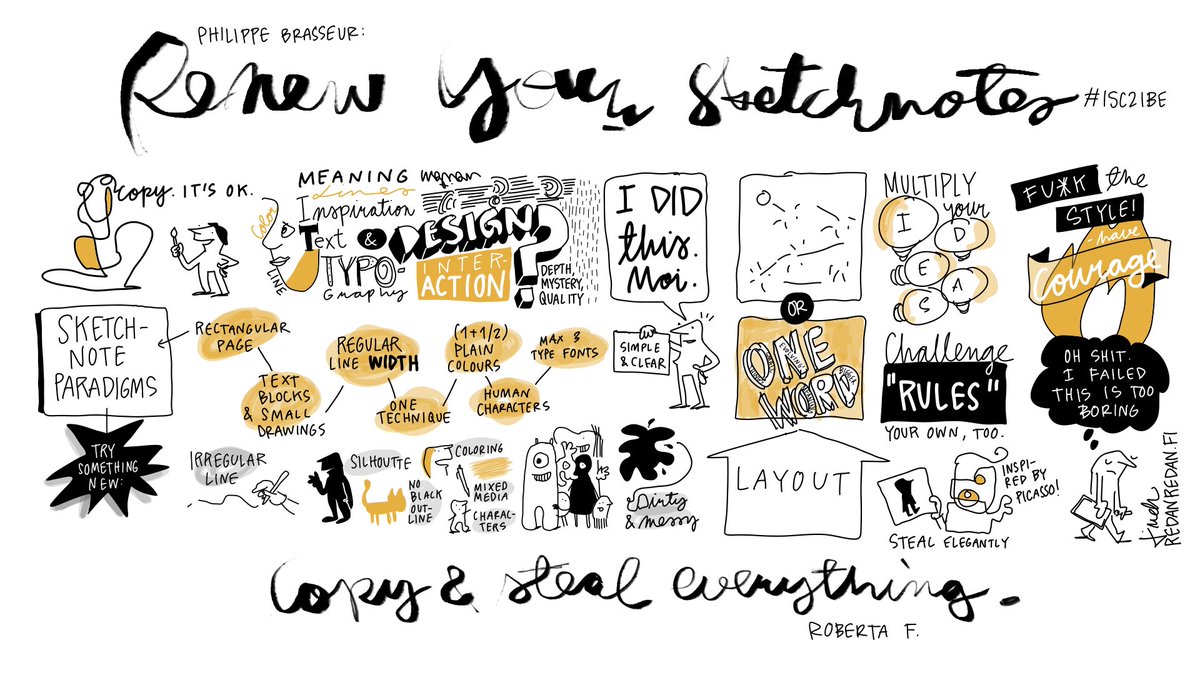 PHILIPPE BRASSEUR:
Renew your sketchnotes
#ISC21BE
copy. IT'S OK.
COLOR
LINE
MEANING
Lines
Inspiration
Text &
TYPO-
Graphy
woman
DESIGN!
INTER-
ACTION
?
DEPTH,
MYSTERY,
QUALITY
I DID
this.
Moi.
SIMPLE
& CLEAR
OR
ONE
WORD
MULTIPLY
your
I
D
E
A
S
FU*K the
STYLE!
-have
Courage
SKETCH-
NOTE
PARADIGMS
RECTANGULAR
PAGE
TEXT
BLOCKS
& SMALL
DRAWINGS
REGULAR
LINE WIDTH
ONE
TECHNIQUE
(1+1/2)
PLAIN
COLOURS
HUMAN
CHARACTERS
MAX 3
TYPE FONTS
Challenge
"RULES"
YOUR OWN, TOO.
OH SHIT.
I FAILED
THIS IS TOO
BORING
TRY
SOMETHING
NEW:
IRREGULAR
LINE
SILHOUTTE
NO
BLACK
OUT-
LINE
COLORING
MIXED
MEDIA
CHARAC-
TERS
Dirty
& messy
LAYOUT
INSPI-
RED BY
PICASSO!
STEAL ELEGANTLY
REDANREDAN.FI
Copy & steal everything.
ROBERTA F.